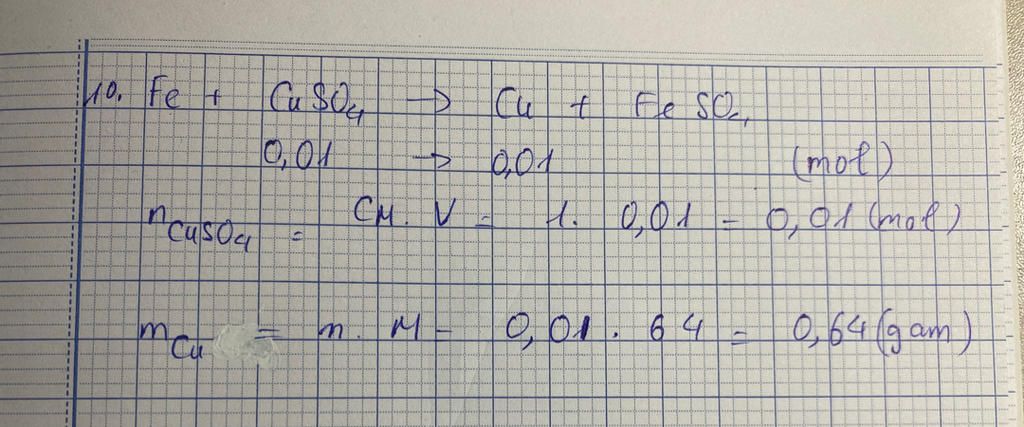 10. Fe + CuSO4 → Cu + FeSO4
0,01 → 0,01 (mol)
nCuSO4 = CM. V = 1. 0,01 = 0,01 (mol)
mCu = n. M = 0,01 . 64 = 0,64 (gam)